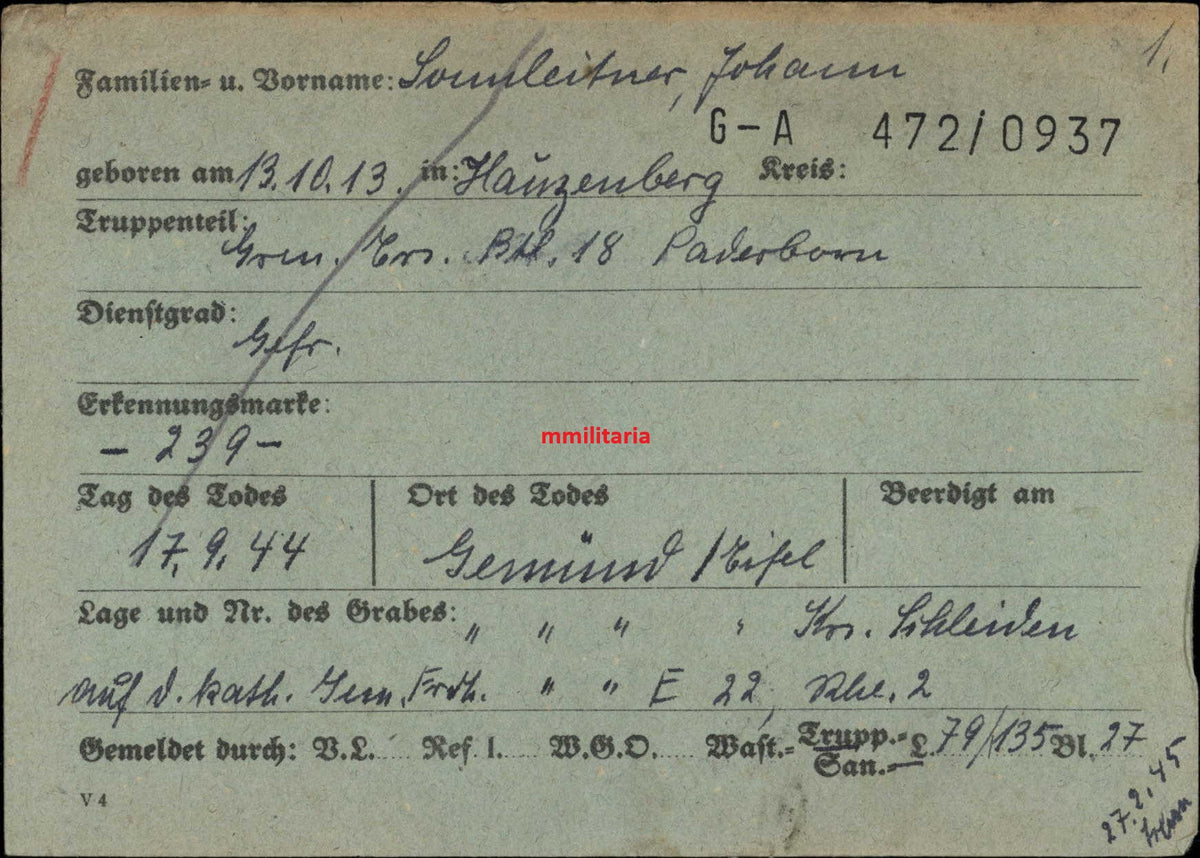 1.
Familien- u. Vorname: Sonnleitner, Johann
G-A 472/0937
geboren am 13.10.13. in: Hauzenberg Kreis:
Truppenteil:
Gren. Ers. Btl. 18 Paderborn
Dienstgrad:
Gefr.
Erkennungsmarke:
- 239 -
mmilitaria
Tag des Todes Ort des Todes Beerdigt am
17.9.44 Gemünd / Eifel
Lage und Nr. des Grabes: " " " " Krs. Schleiden
auf d. kath. Gem. Frdh. " " E 22, Rhe. 2
Gemeldet durch: V.L. Ref. I. W.G.O. Wast.- Trupp.- San.- L. 79/135 Bl. 27
V 4
27.2.45